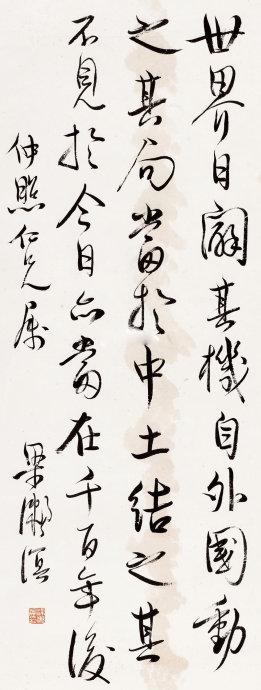 世界日闢其機自外國動
之其局當於中土結之其
不見於今日亦當在千百年後
仲熙仁兄属
梁漱溟